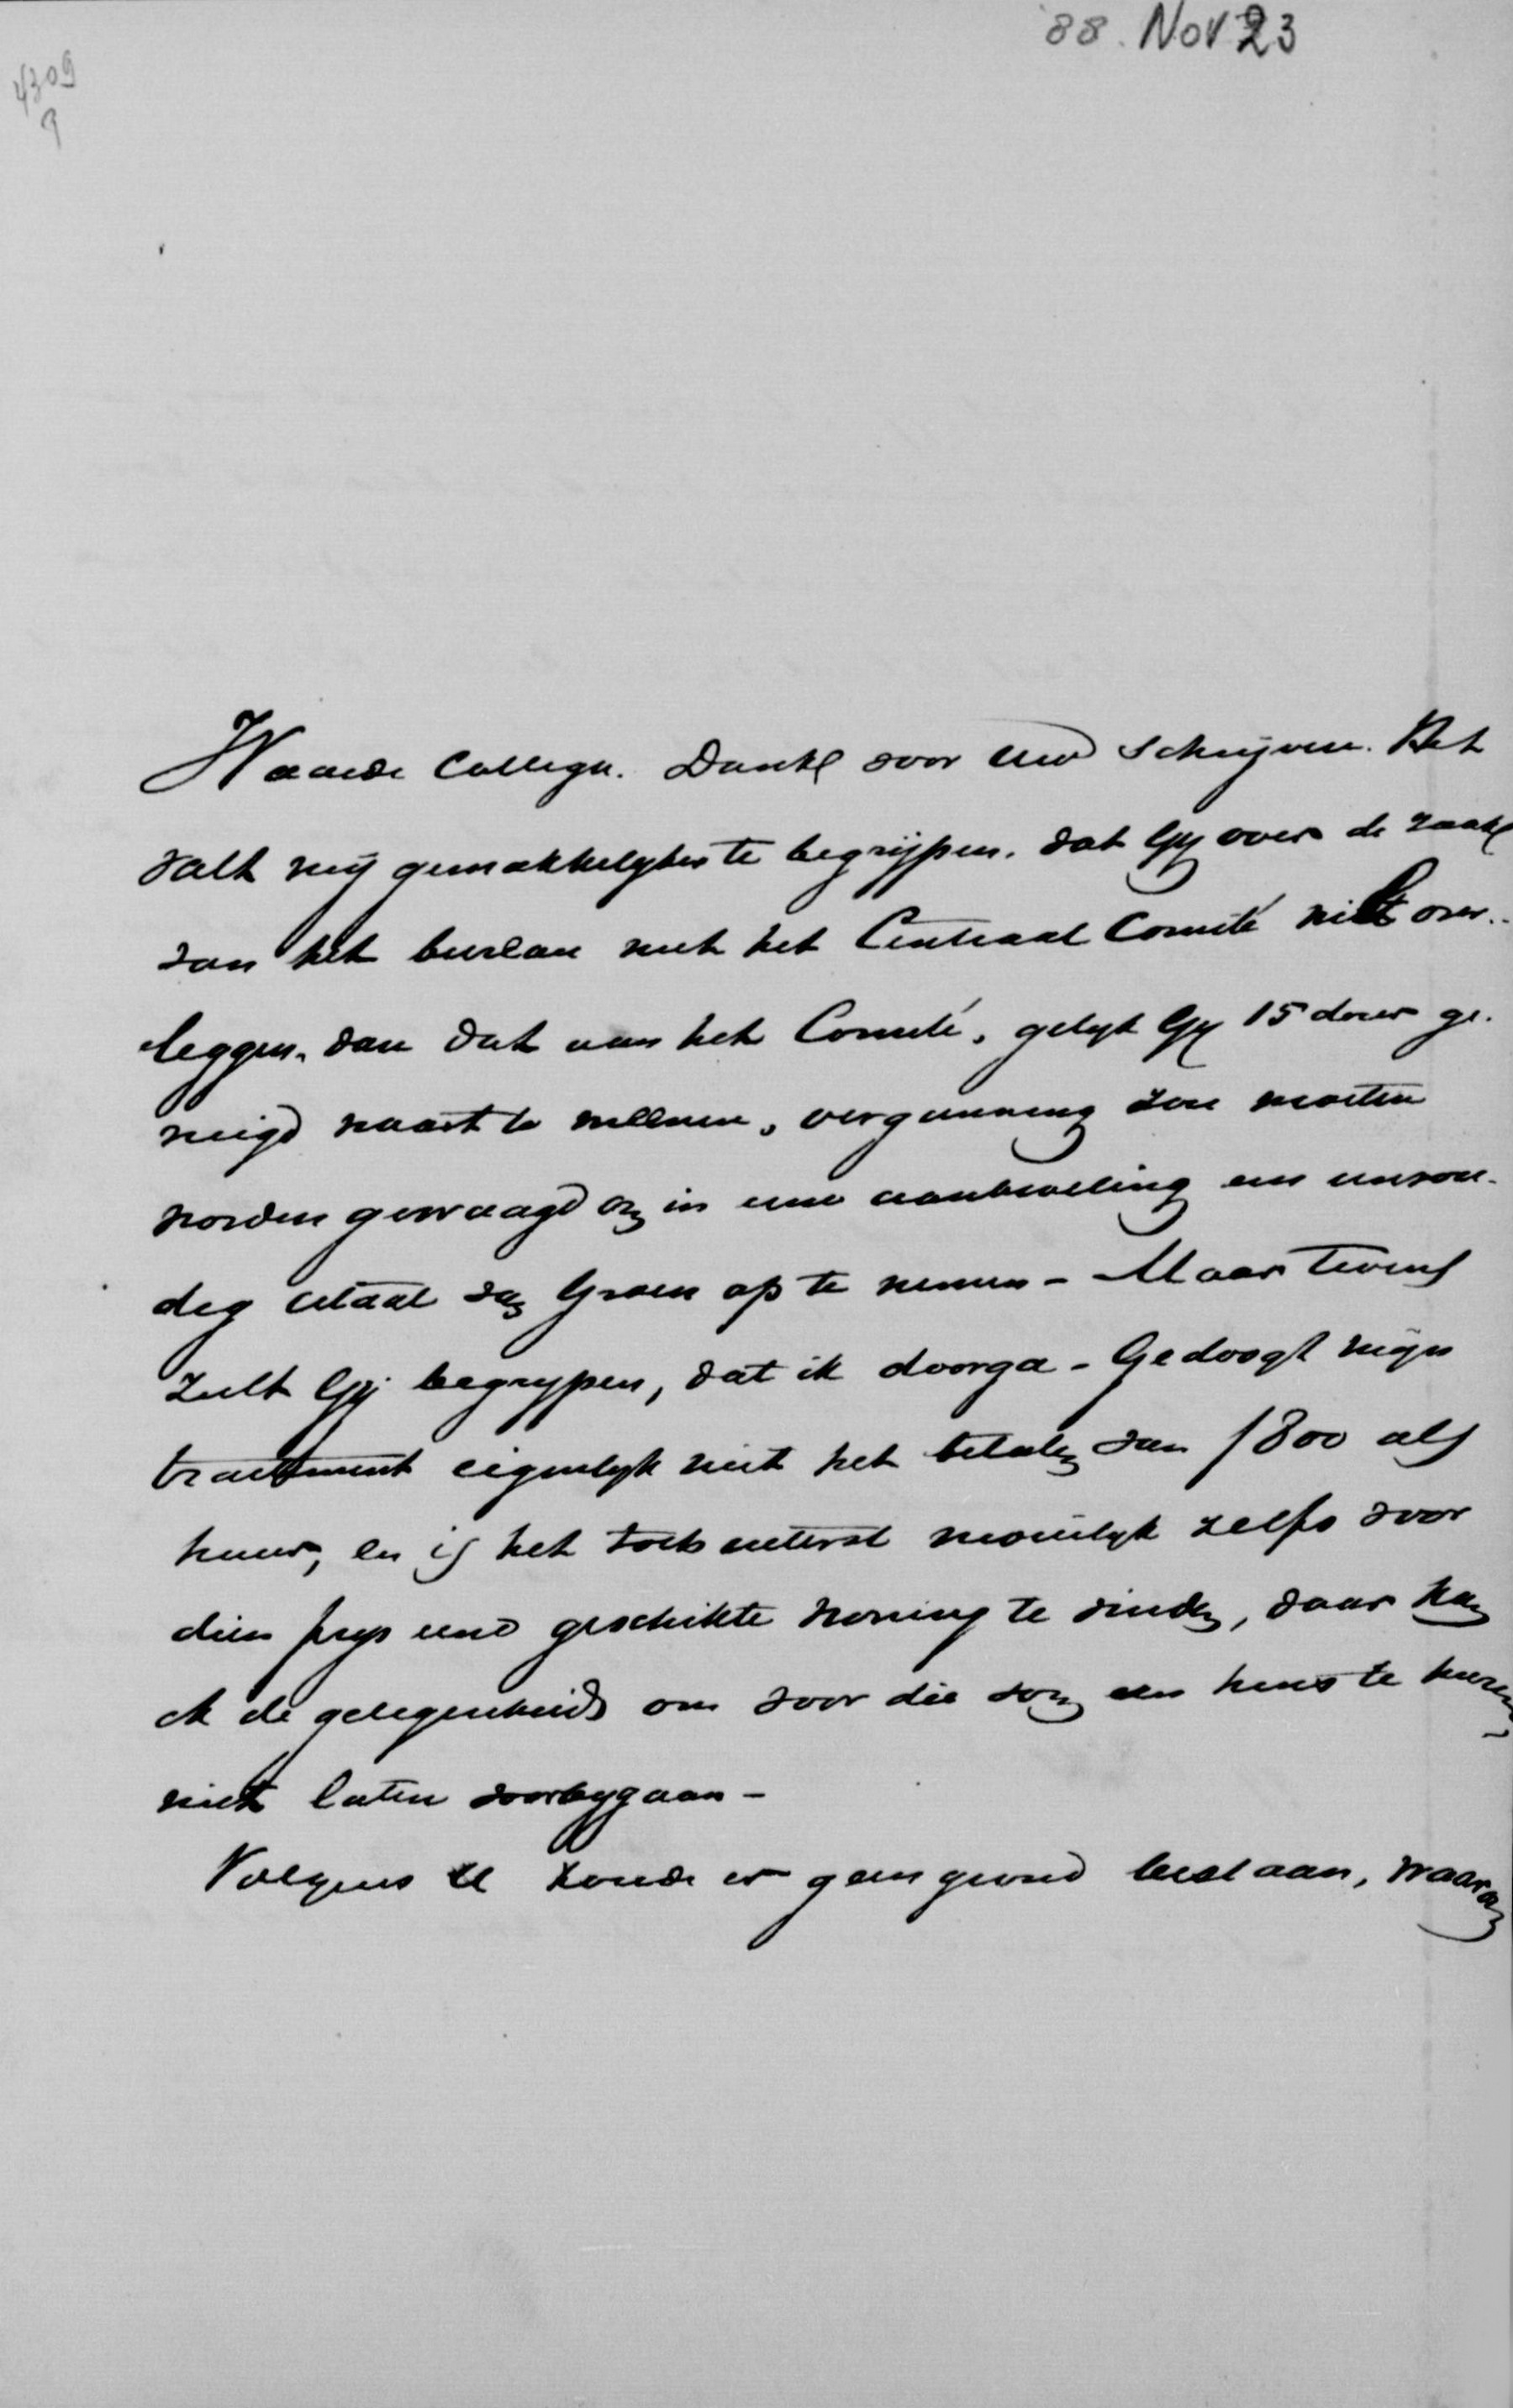 '88. Nov 23
4309
Waarde Collega. Dank voor Uw schrijven. Het
valt mij gemakkelijker te begrijpen, dat Gij over de zaak
van het bureau met het Centraal Comité wilt over-
leggen, dan dat aan het Comité, gelijk Gij er
neigd waart te meenen, vergunning zou moeten
worden gevraagd om in eene aanbeveling een eenvou-
dig citaat van Groen op te nemen - Maar tevens
zult Gij begrijpen, dat ik doorga - Gedoogt mijn
traktement eigenlijk niet het betalen van f 800 als
huur, en is het toch uiterst moeilijk zelfs voor
dien prijs eene geschikte woning te vinden, daar kan
ik de gelegenheid om voor die som een huis te huren,
niet laten voorbijgaan -
Volgens U zoude er geen grond bestaan, waarom